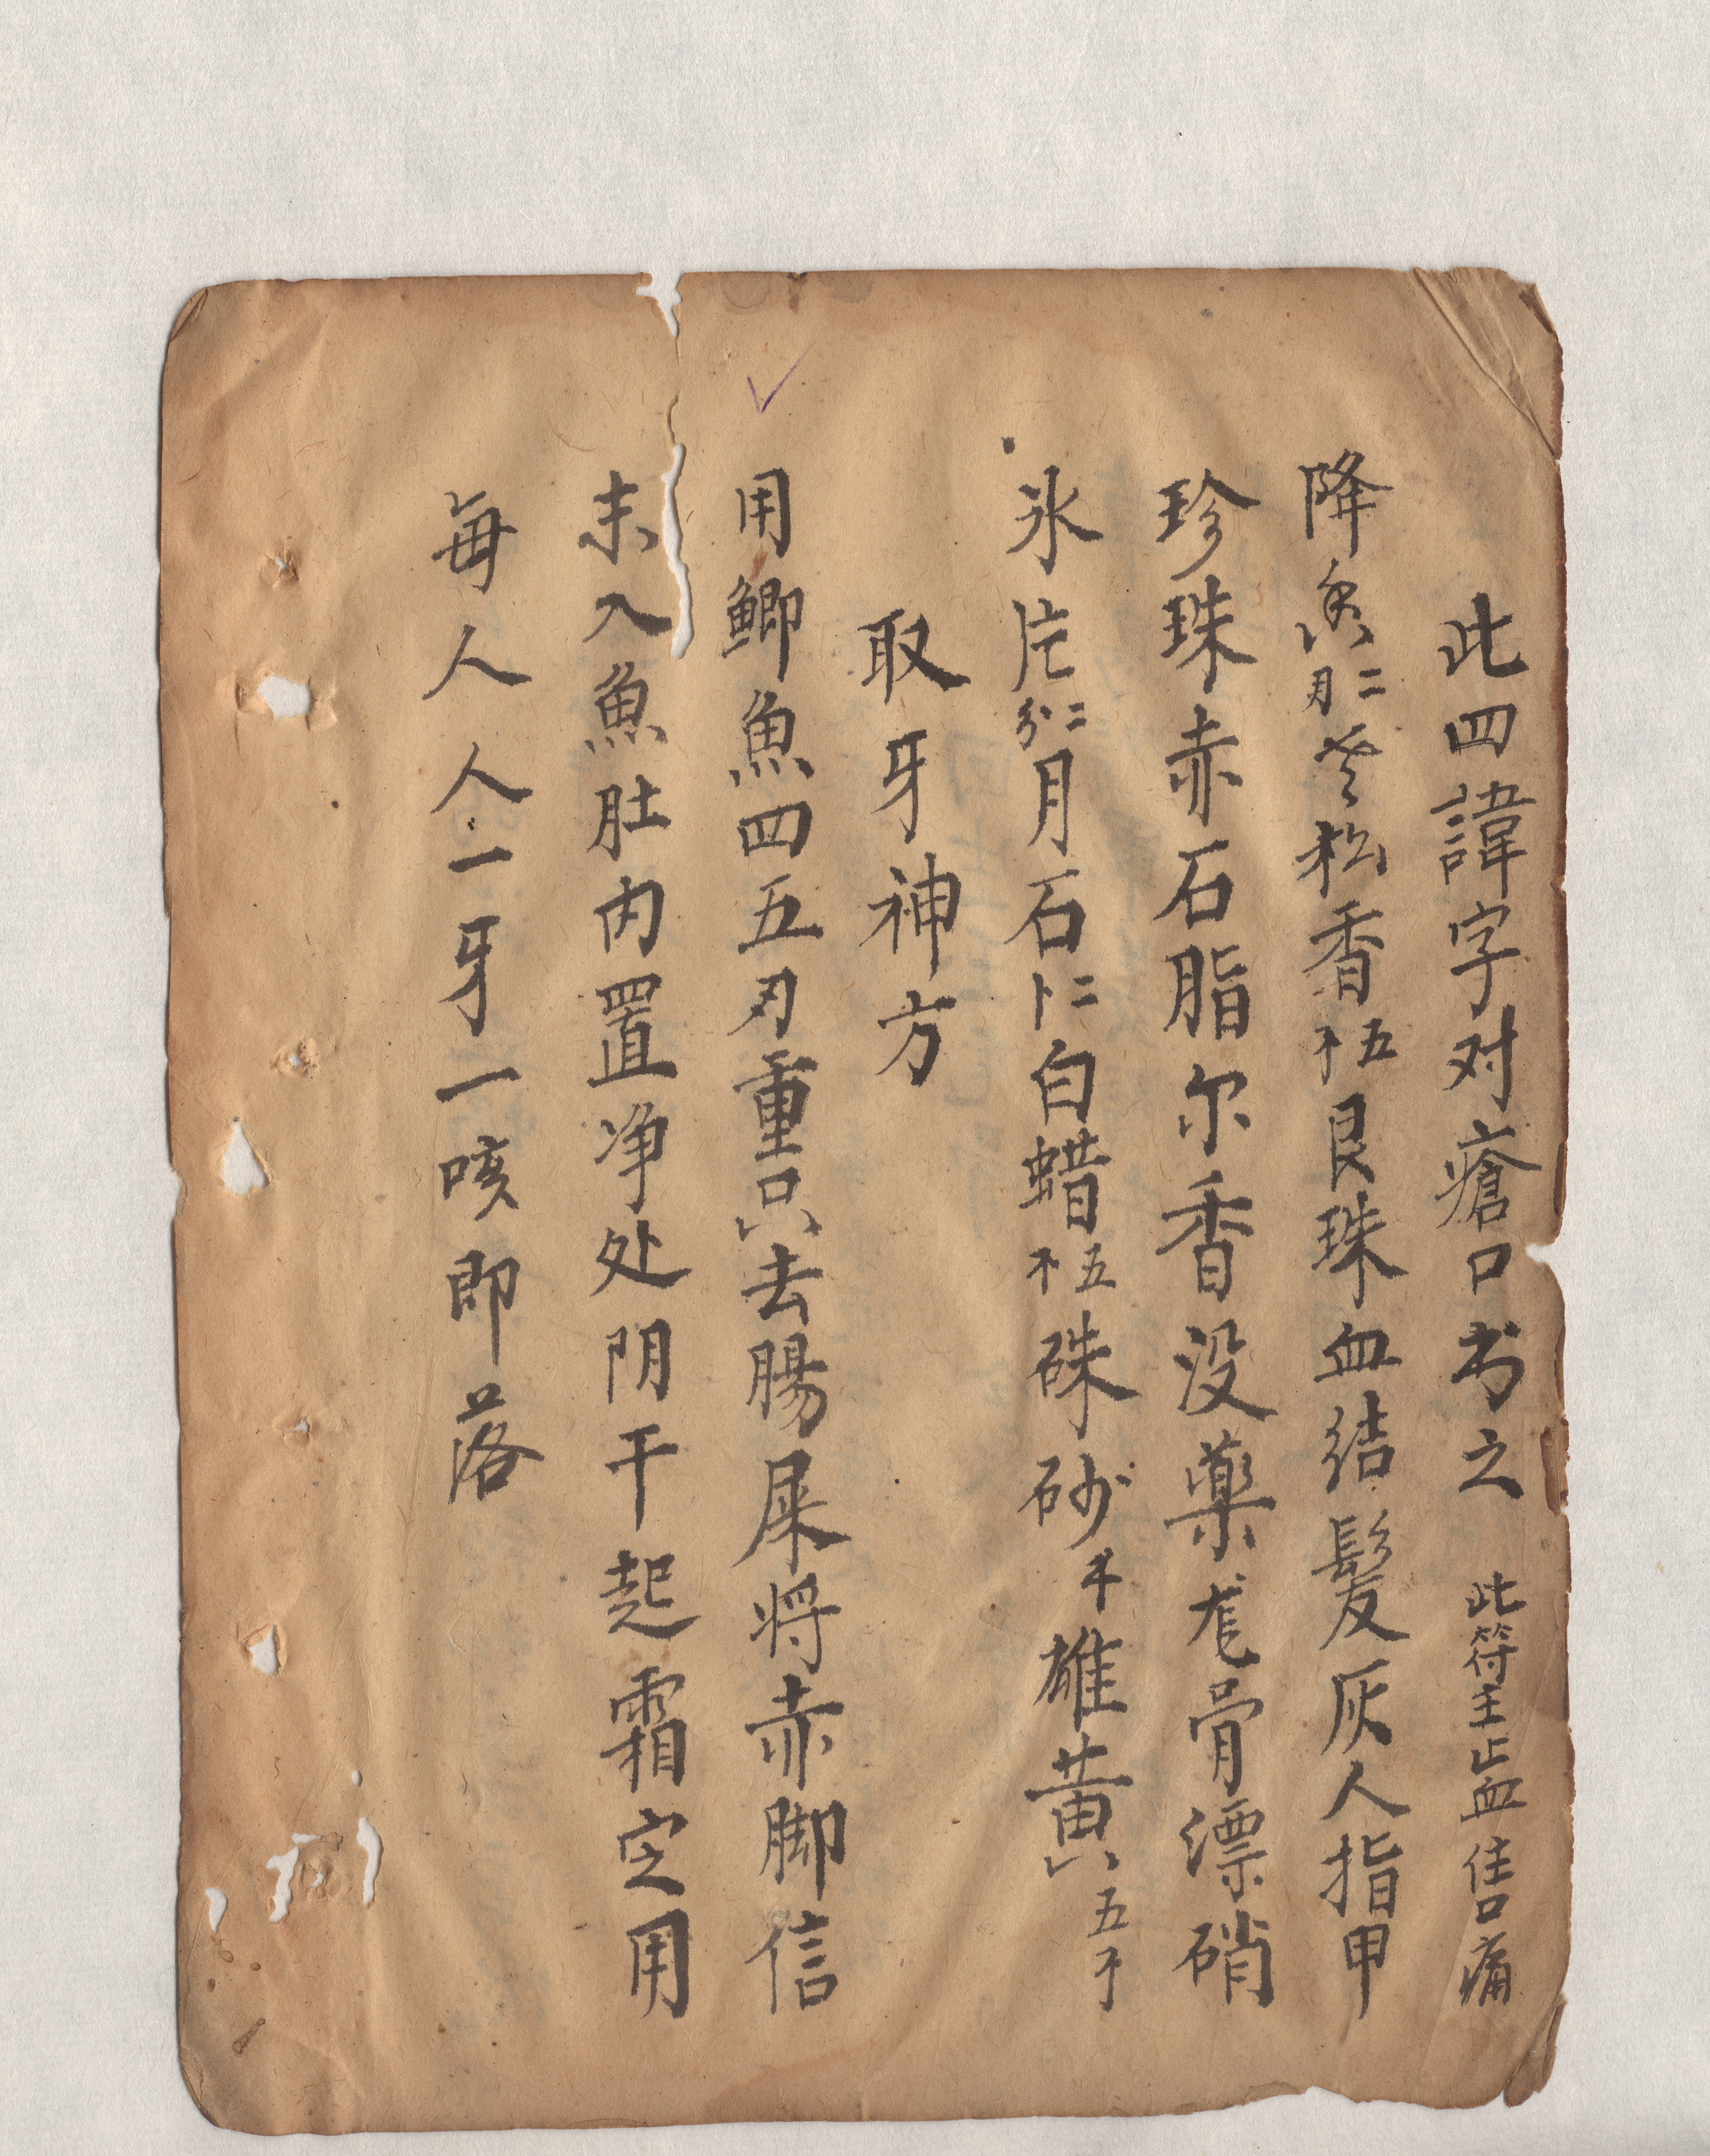 此四諱字对瘡口书之 此符主止血住口痛
降魚月二 松香五 艮珠血结髮灰人指甲
珍珠赤石脂尔香没藥龙骨漂硝
氷片二分月石二卜白蜡五硃砂雄黃五
取牙神方
用鲫魚四五刄重只去腸屎将赤脚信
末入魚肚内置净处阴干起霜定用
每人人一牙一咳即落